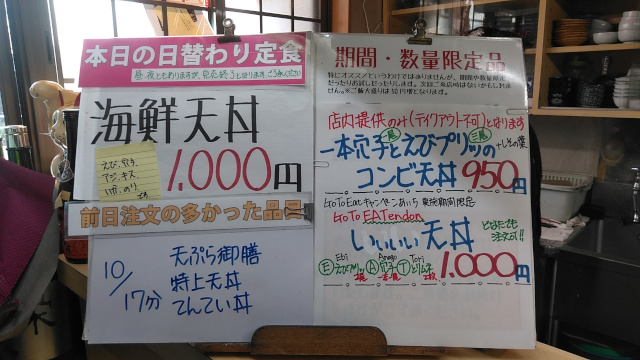 本日の日替わり定食
昼・夜ともありますが、完売終了となります。ごめんください
海鮮天丼
えび、穴子
アジ、キス
のり
1,000円
前日注文の多かった品目
10/17分
天ぷら御膳
特上天丼
てんてい丼
期間・数量限定品
特にオススメというわけではありませんが、期間や数量限定
だったりお試しだったりします。次回ご来店時はないかもしれま
せん。※ご飯大盛りは50円増となります。
店内提供のみ(テイクアウト不可)となります
一本穴子とえびプリッの
二尾
三尾
+しその葉
コンビ天丼 950円
GoToEatキャンペーンあいち 実施期間限定
GoTo EATendon
いいいい天丼
どなたでも
注文可!!
Ebi
Anago
Tori
E えびプリッ A 穴子 T とりムネ
1,000円